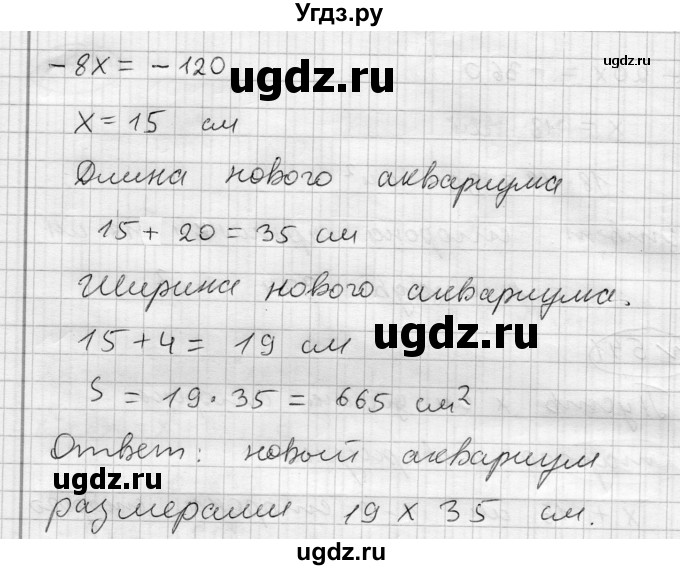 Угдз.ру
- 8x = - 120
ugdz.ru
x = 15 см
Длина нового аквариума
15 + 20 = 35 см
Ширина нового аквариума.
15 + 4 = 19 см
ugdz.ru
S = 19 · 35 = 665 см²
Ответ: новый аквариум
ugdz.ru
размерами 19 x 35 см.
ugdz.ru